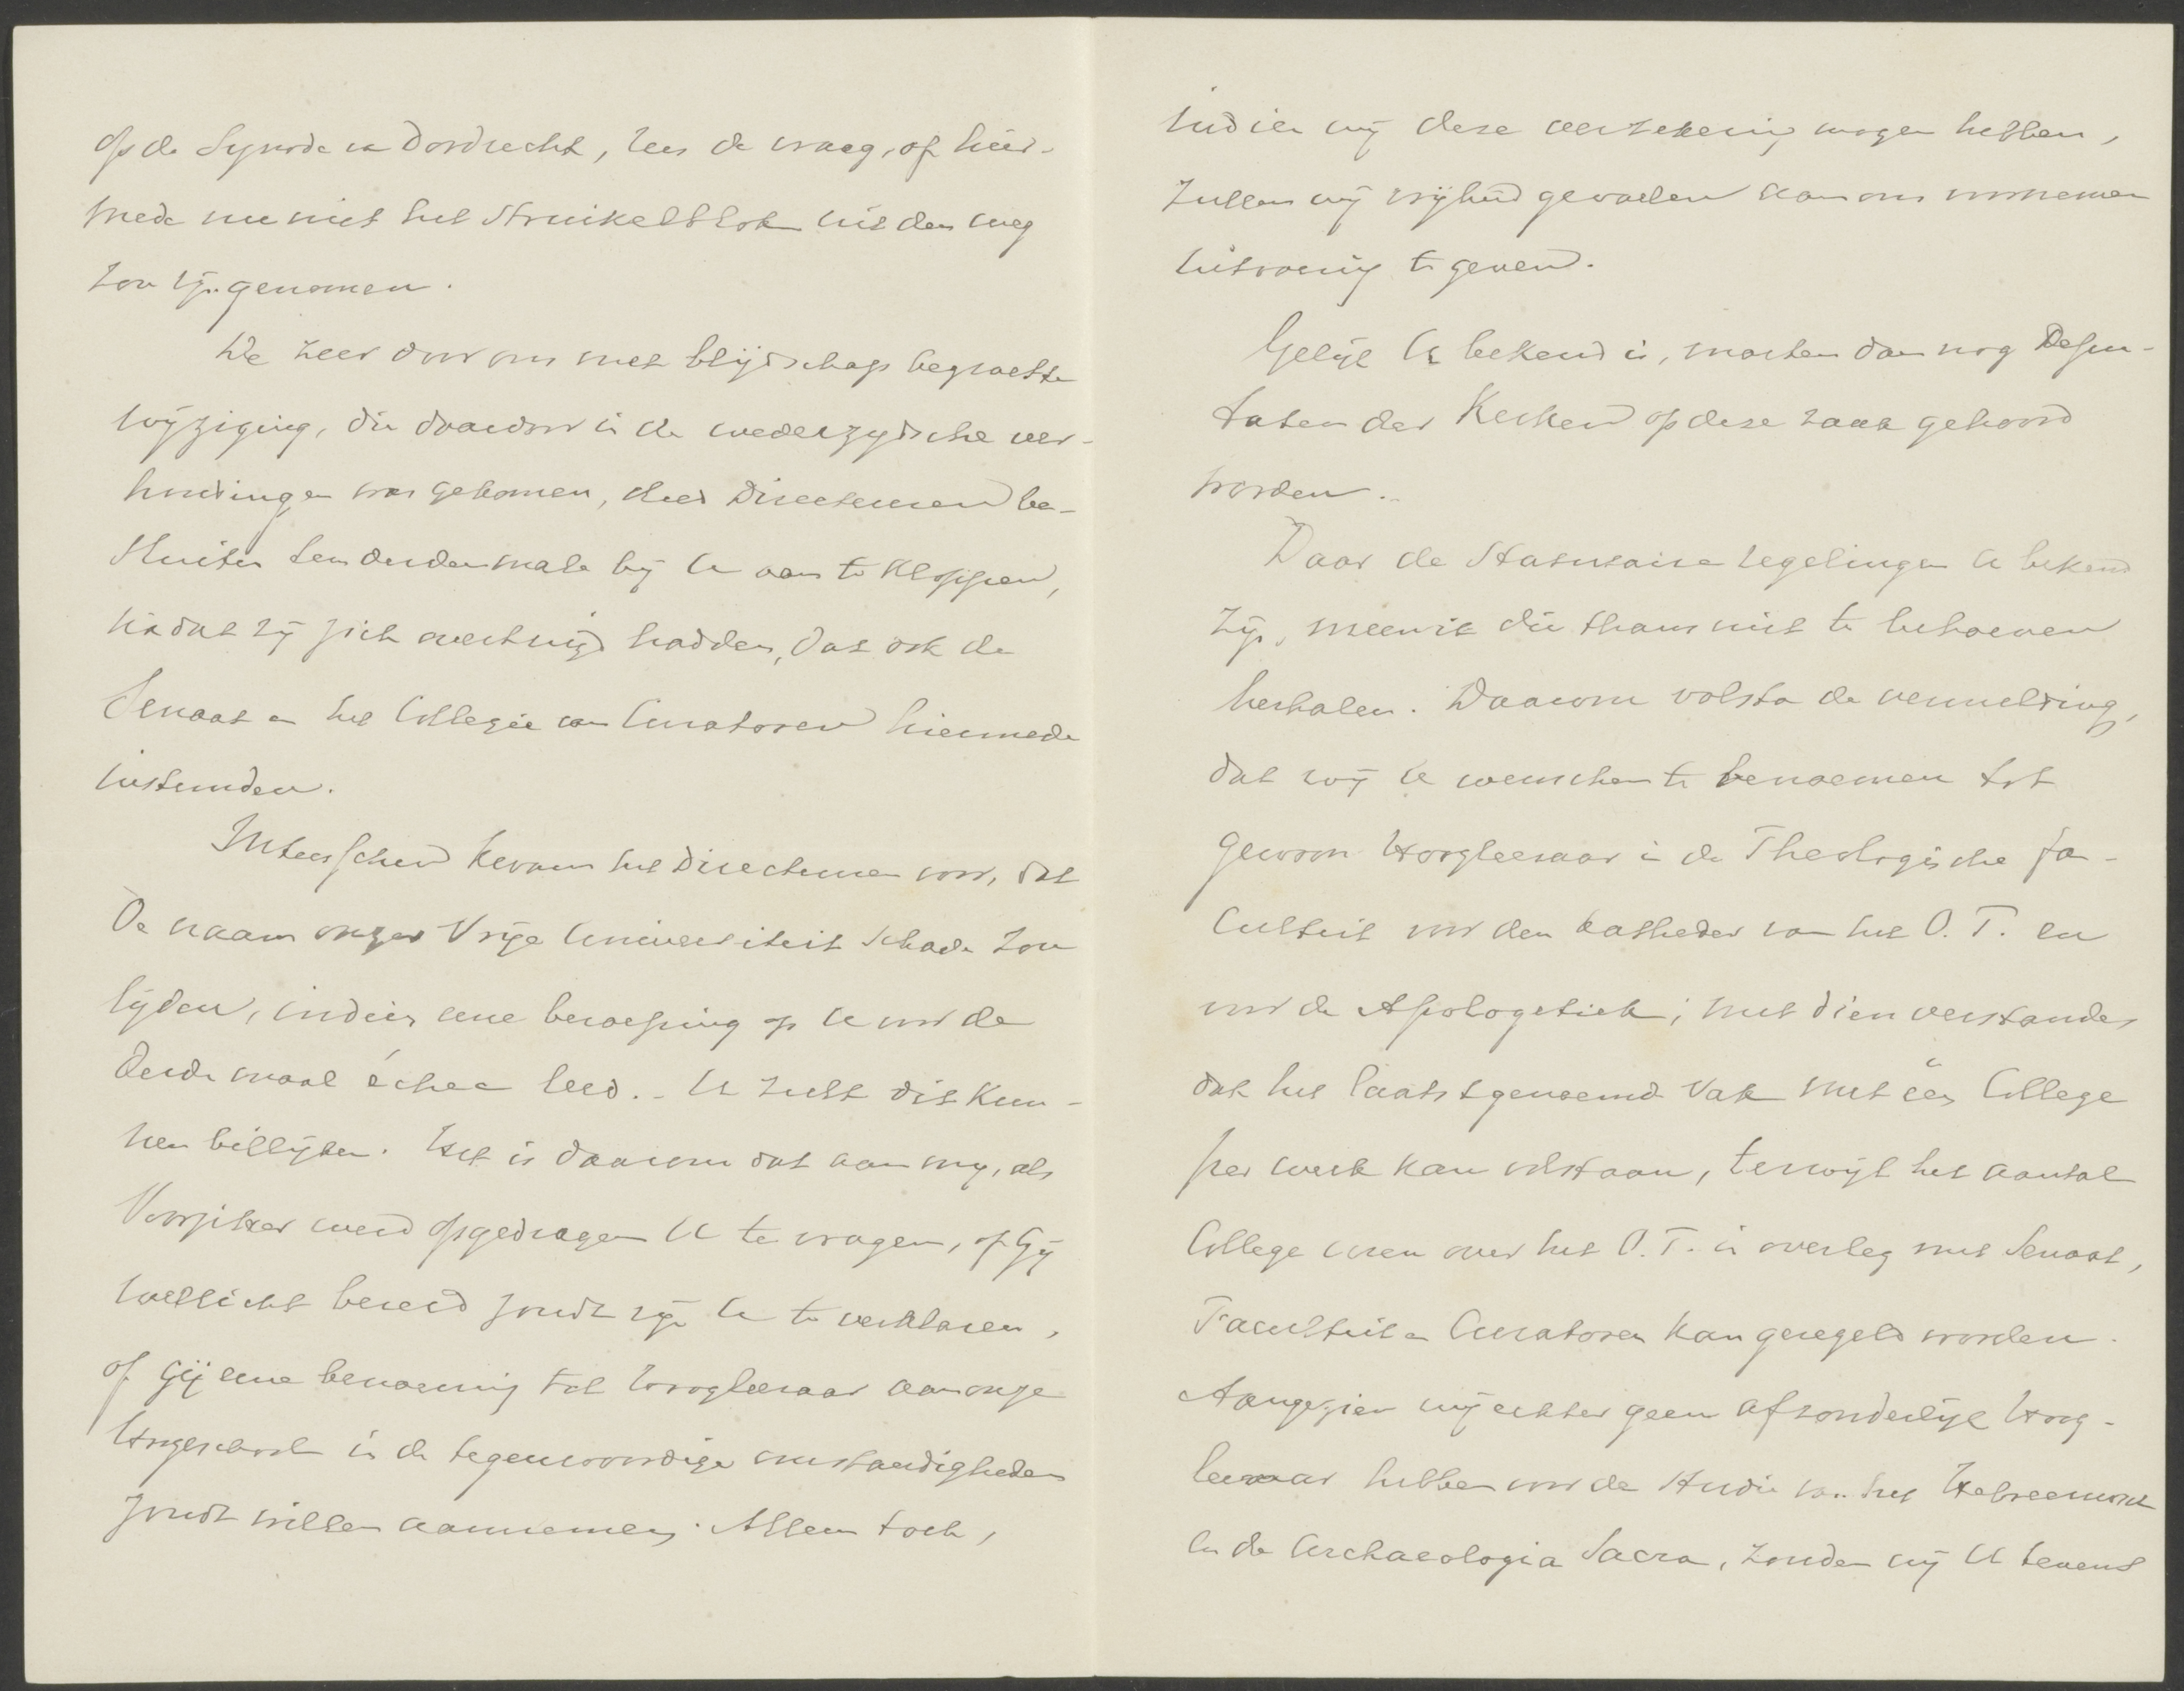 op de Synode van Dordrecht, rees de vraag, of hier-
mede nu niet het struikelblok uit den weg
zou zijn genomen.
De zeer door ons met blijdschap begroette
wijziging, die daardoor in de wederzijdsche ver-
houdingen was gekomen, deed Directeuren be-
sluiten ten derden male bij U aan te kloppen,
nadat zij zich overtuigd hadden, dat ook de
Senaat en het Collegie van Curatoren hiermede
instemden.
Intusschen kwam het Directeuren voor, dat
de naam onzer Vrije Universiteit schade zou
lijden, indien eene beroeping op U voor de
derde maal échec leed. - U zult dit kun-
nen billijken. Het is daarom dat aan mij, als
Voorzitter werd opgedragen U te vragen, of Gij
wellicht bereid zoudt zijn U te verklaren,
of Gij eene benoeming tot Hoogleeraar aan onze
Hoogeschool in de tegenwoordige omstandigheden
zoudt willen aannemen. Alleen toch,
indien wij deze verzekering mogen hebben,
zullen wij vrijheid gevoelen aan ons voornemen
uitvoering te geven.
Gelijk U bekend is, moeten dan nog Depu-
taten der Kerken op deze zaak gehoord
worden.
Daar de statutaire regelingen U bekend
zijn, meen ik die thans niet te behoeven
herhalen. Daarom volsta de vermelding,
dat wij U wenschen te benoemen tot
gewoon Hoogleeraar in de Theologische Fa-
culteit voor den katheder van het O. T. en
voor de Apologetiek; met dien verstande,
dat het laatstgenoemde vak met één College
per week kan volstaan, terwijl het aantal
College uren over het O. T. in overleg met Senaat,
Faculteit en Curatoren kan geregeld worden.
Aangezien wij echter geen afzonderlijk Hoog-
leeraar hebben voor de studie van het Hebreeuwsch
en de Archaeologia Sacra, zouden wij U tevens